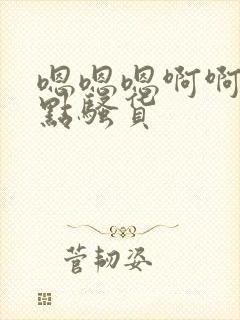 嗯嗯嗯啊啊
點騷貨
菅韧姿